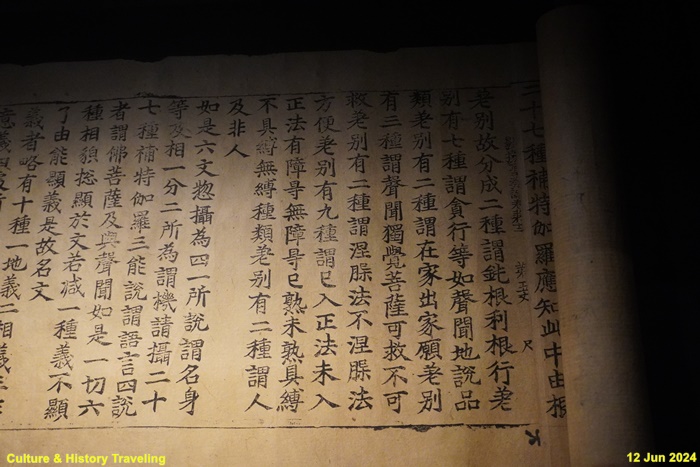 二十七種補特伽羅應知此中由根
差別故分成二種謂鈍根利根行差
別有七種謂貪行等如聲聞地說品
類差別有二種謂在家出家願差別
有三種謂聲聞獨覺菩薩可救不可
救差別有二種謂涅槃法不涅槃法
方便差別有九種謂已入正法未入
正法有障㝵無障㝵已熟未熟具縛
不具縛無縛種類差別有二種謂人
及非人
如是六文惣攝為四一所說謂名身
等及相一分二所為謂機請攝二十
七種補特伽羅三能說謂語言四說
者謂佛菩薩及與聲聞如是一切六
種相貌惣顯於文若减一種義不顯
了由能顯義是故名文
義者略有十種一地義二相義三作
意義四依處
Culture & History Traveling
12 Jun 2024